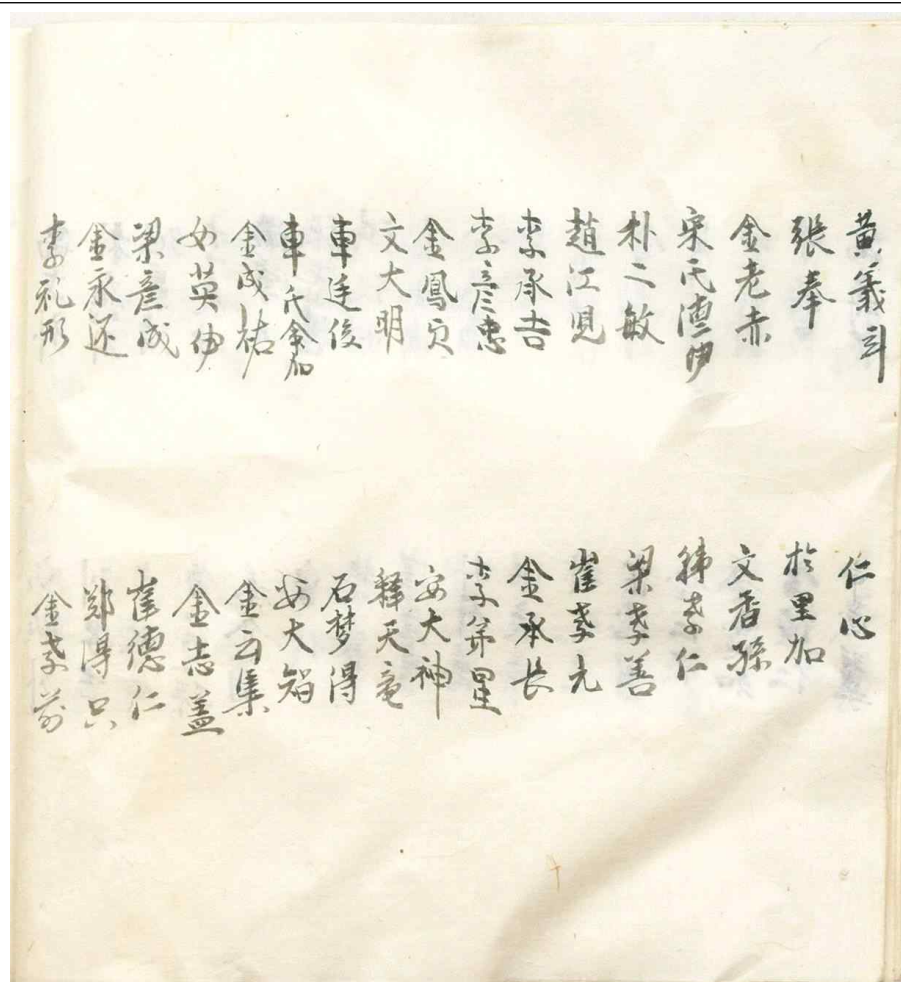 黄義計
張奉
金老赤
宋氏德伊
朴二敏
趙江見
李承吉
李彦忠
金鳳
文大明
車廷俊
車氏
金成祐
女英伊
梁彦成
金永還
李礼形
仁心
於里加
文香孫
韓孝仁
梁孝善
崔孝元
金承長
李弟星
安大神
釋天竜
石梦得
安大智
金云集
金志盖
崔德仁
鄭得只
金孝